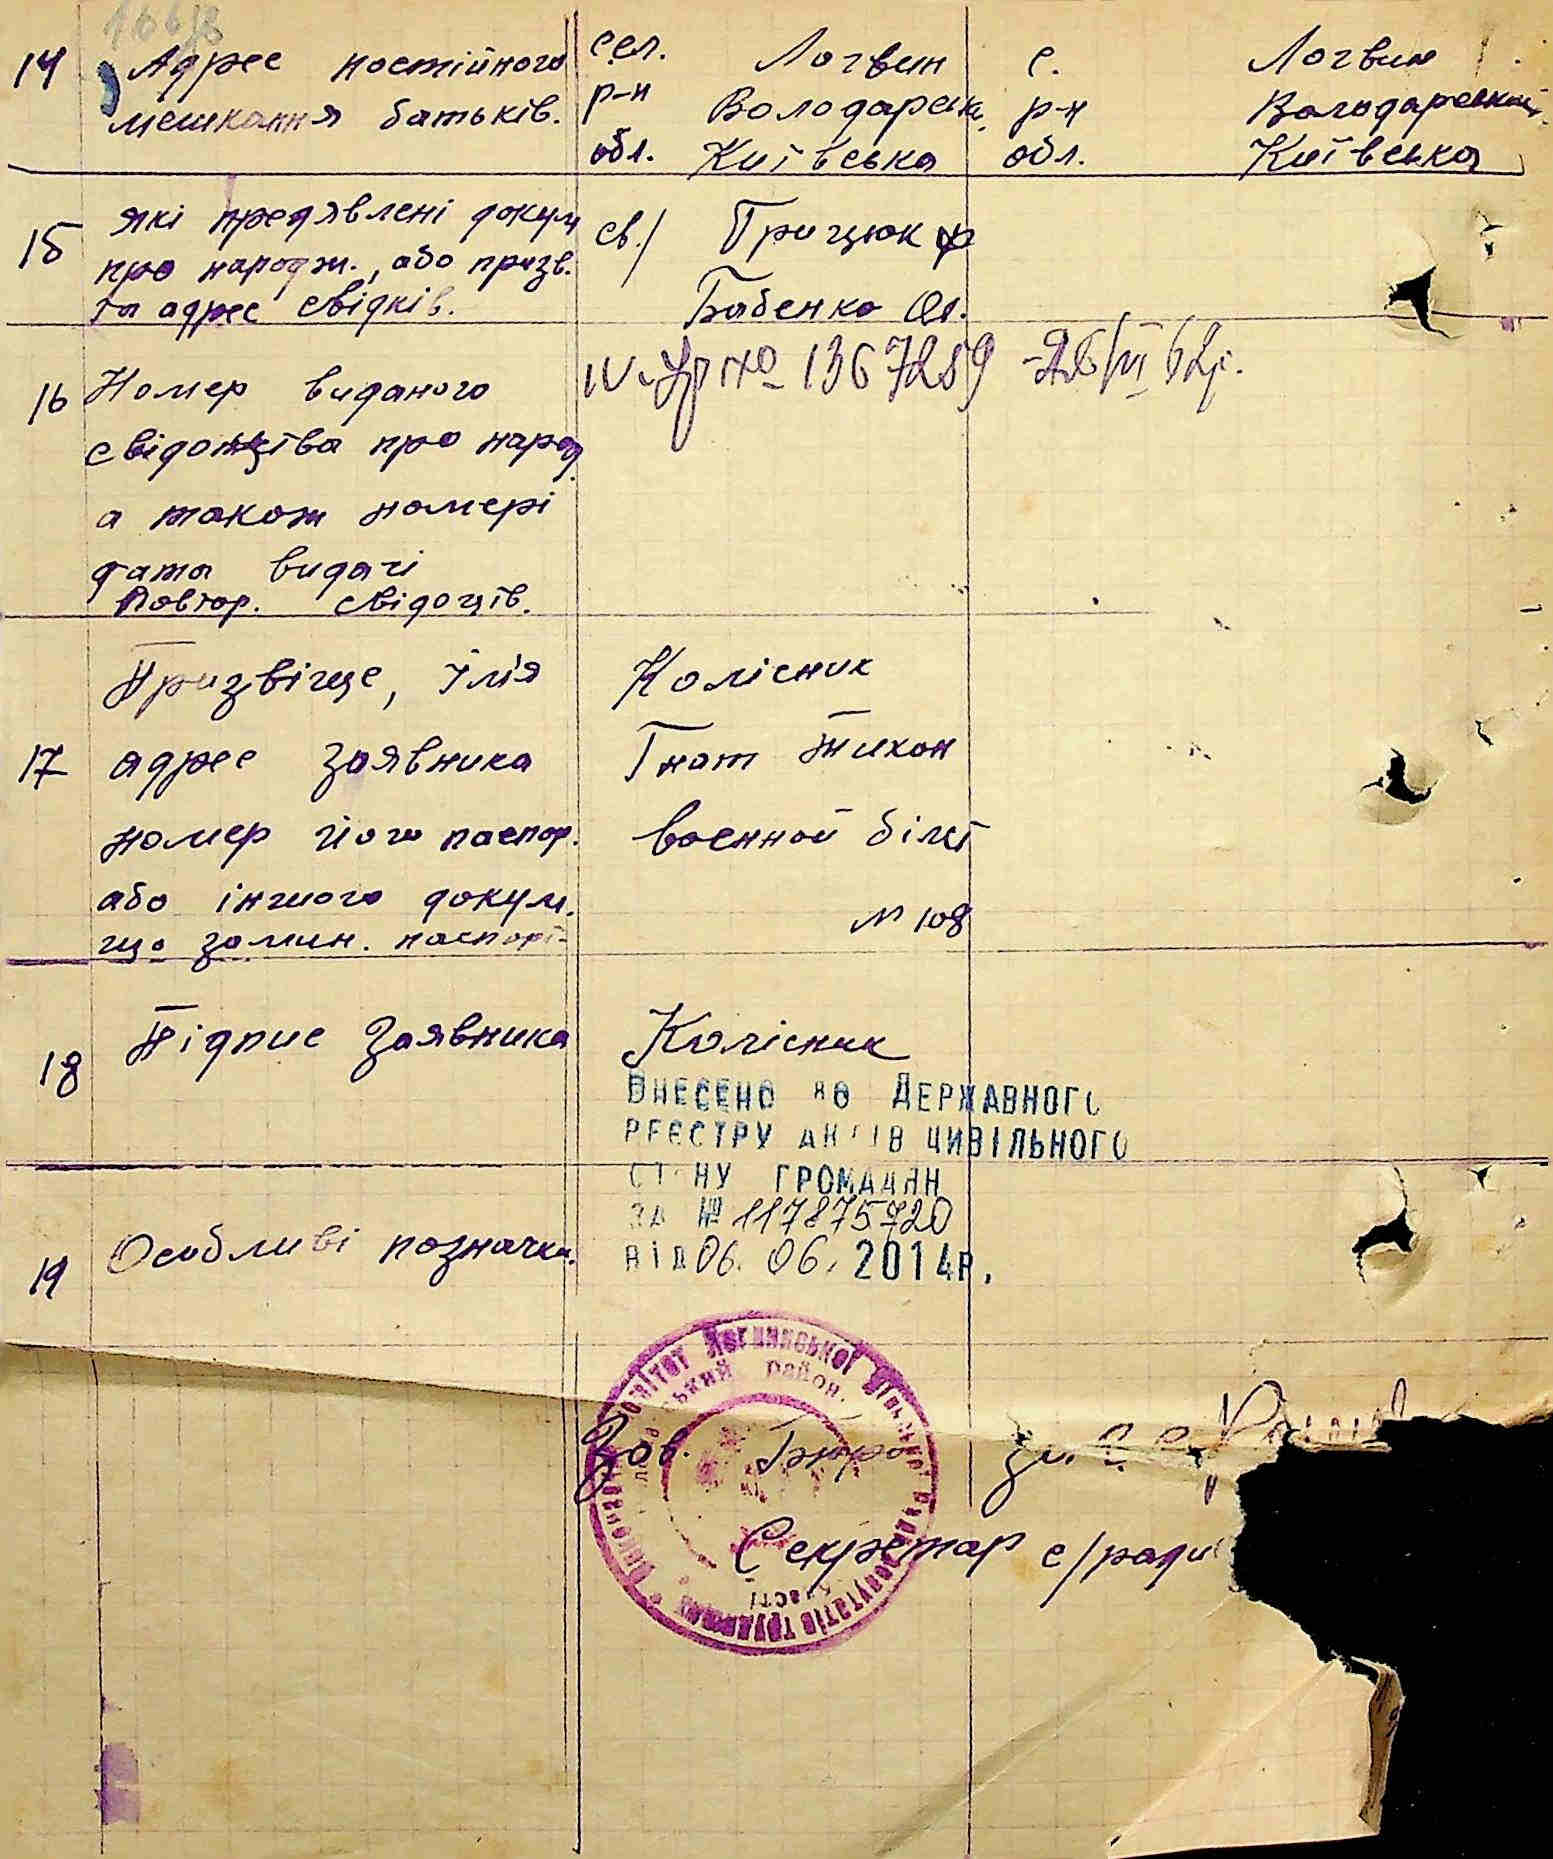 14 Адрес постійного сел. Логвин с. Логвин
мешкання батьків. р-н Володарськ. р-н Володарський
обл. Київська обл. Київська
15 які предявлені докум св./ Грицюк
про народж., або призв.
та адрес свідків. Бабенко Ол.
16 Номер виданого № 1367259 62р.
свідоцтва про народ.
а також номері
дата видачі
повтор. свідоцтв.
Призвіще, імя Колісник
17 адрес заявника Гнат Тихон
номер його паспор. военной білет
або іншого докум. № 108
що замин. паспорт
18 Підпис Заявника Колісник
ВНЕСЕНО ДО ДЕРЖАВНОГО
РЕЄСТРУ АКТІВ ЦИВІЛЬНОГО
СТАНУ ГРОМАДЯН
ЗА № 117875720
19 Особливі позначки. ВІД 06. 06. 2014Р.
Виконавчий комітет Логвинської сільської Ради депутатів трудящих
район.
області
Зав. Бюро
Секретар с/ради